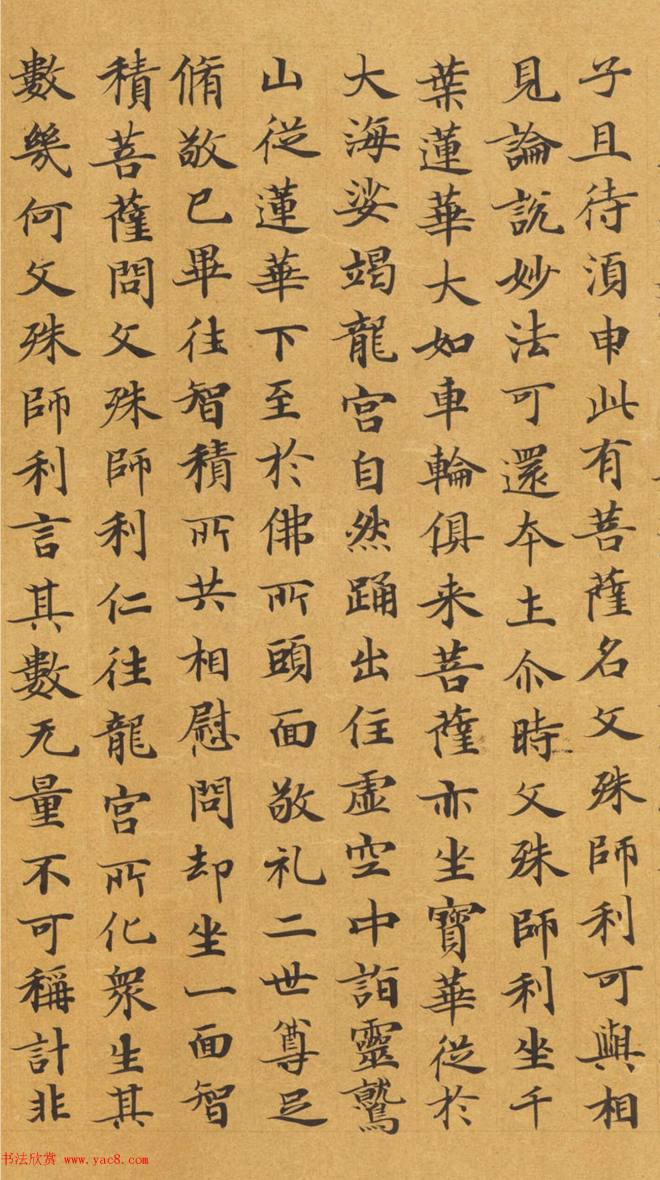 子且待湏申此有菩薩名文殊師利可與相
見論説妙法可還本土尒時文殊師利坐千
葉蓮華大如車輪俱来菩薩亦坐寶華従於
大海娑竭龍宮自然踊出住虚空中詣靈鷲
山従蓮華下至於佛所頭面敬礼二世尊足
脩敬已畢往智積所共相慰問却坐一面智
積菩薩問文殊師利仁往龍宮所化衆生其
數幾何文殊師利言其數无量不可稱計非
书法欣赏 www.yac8.com